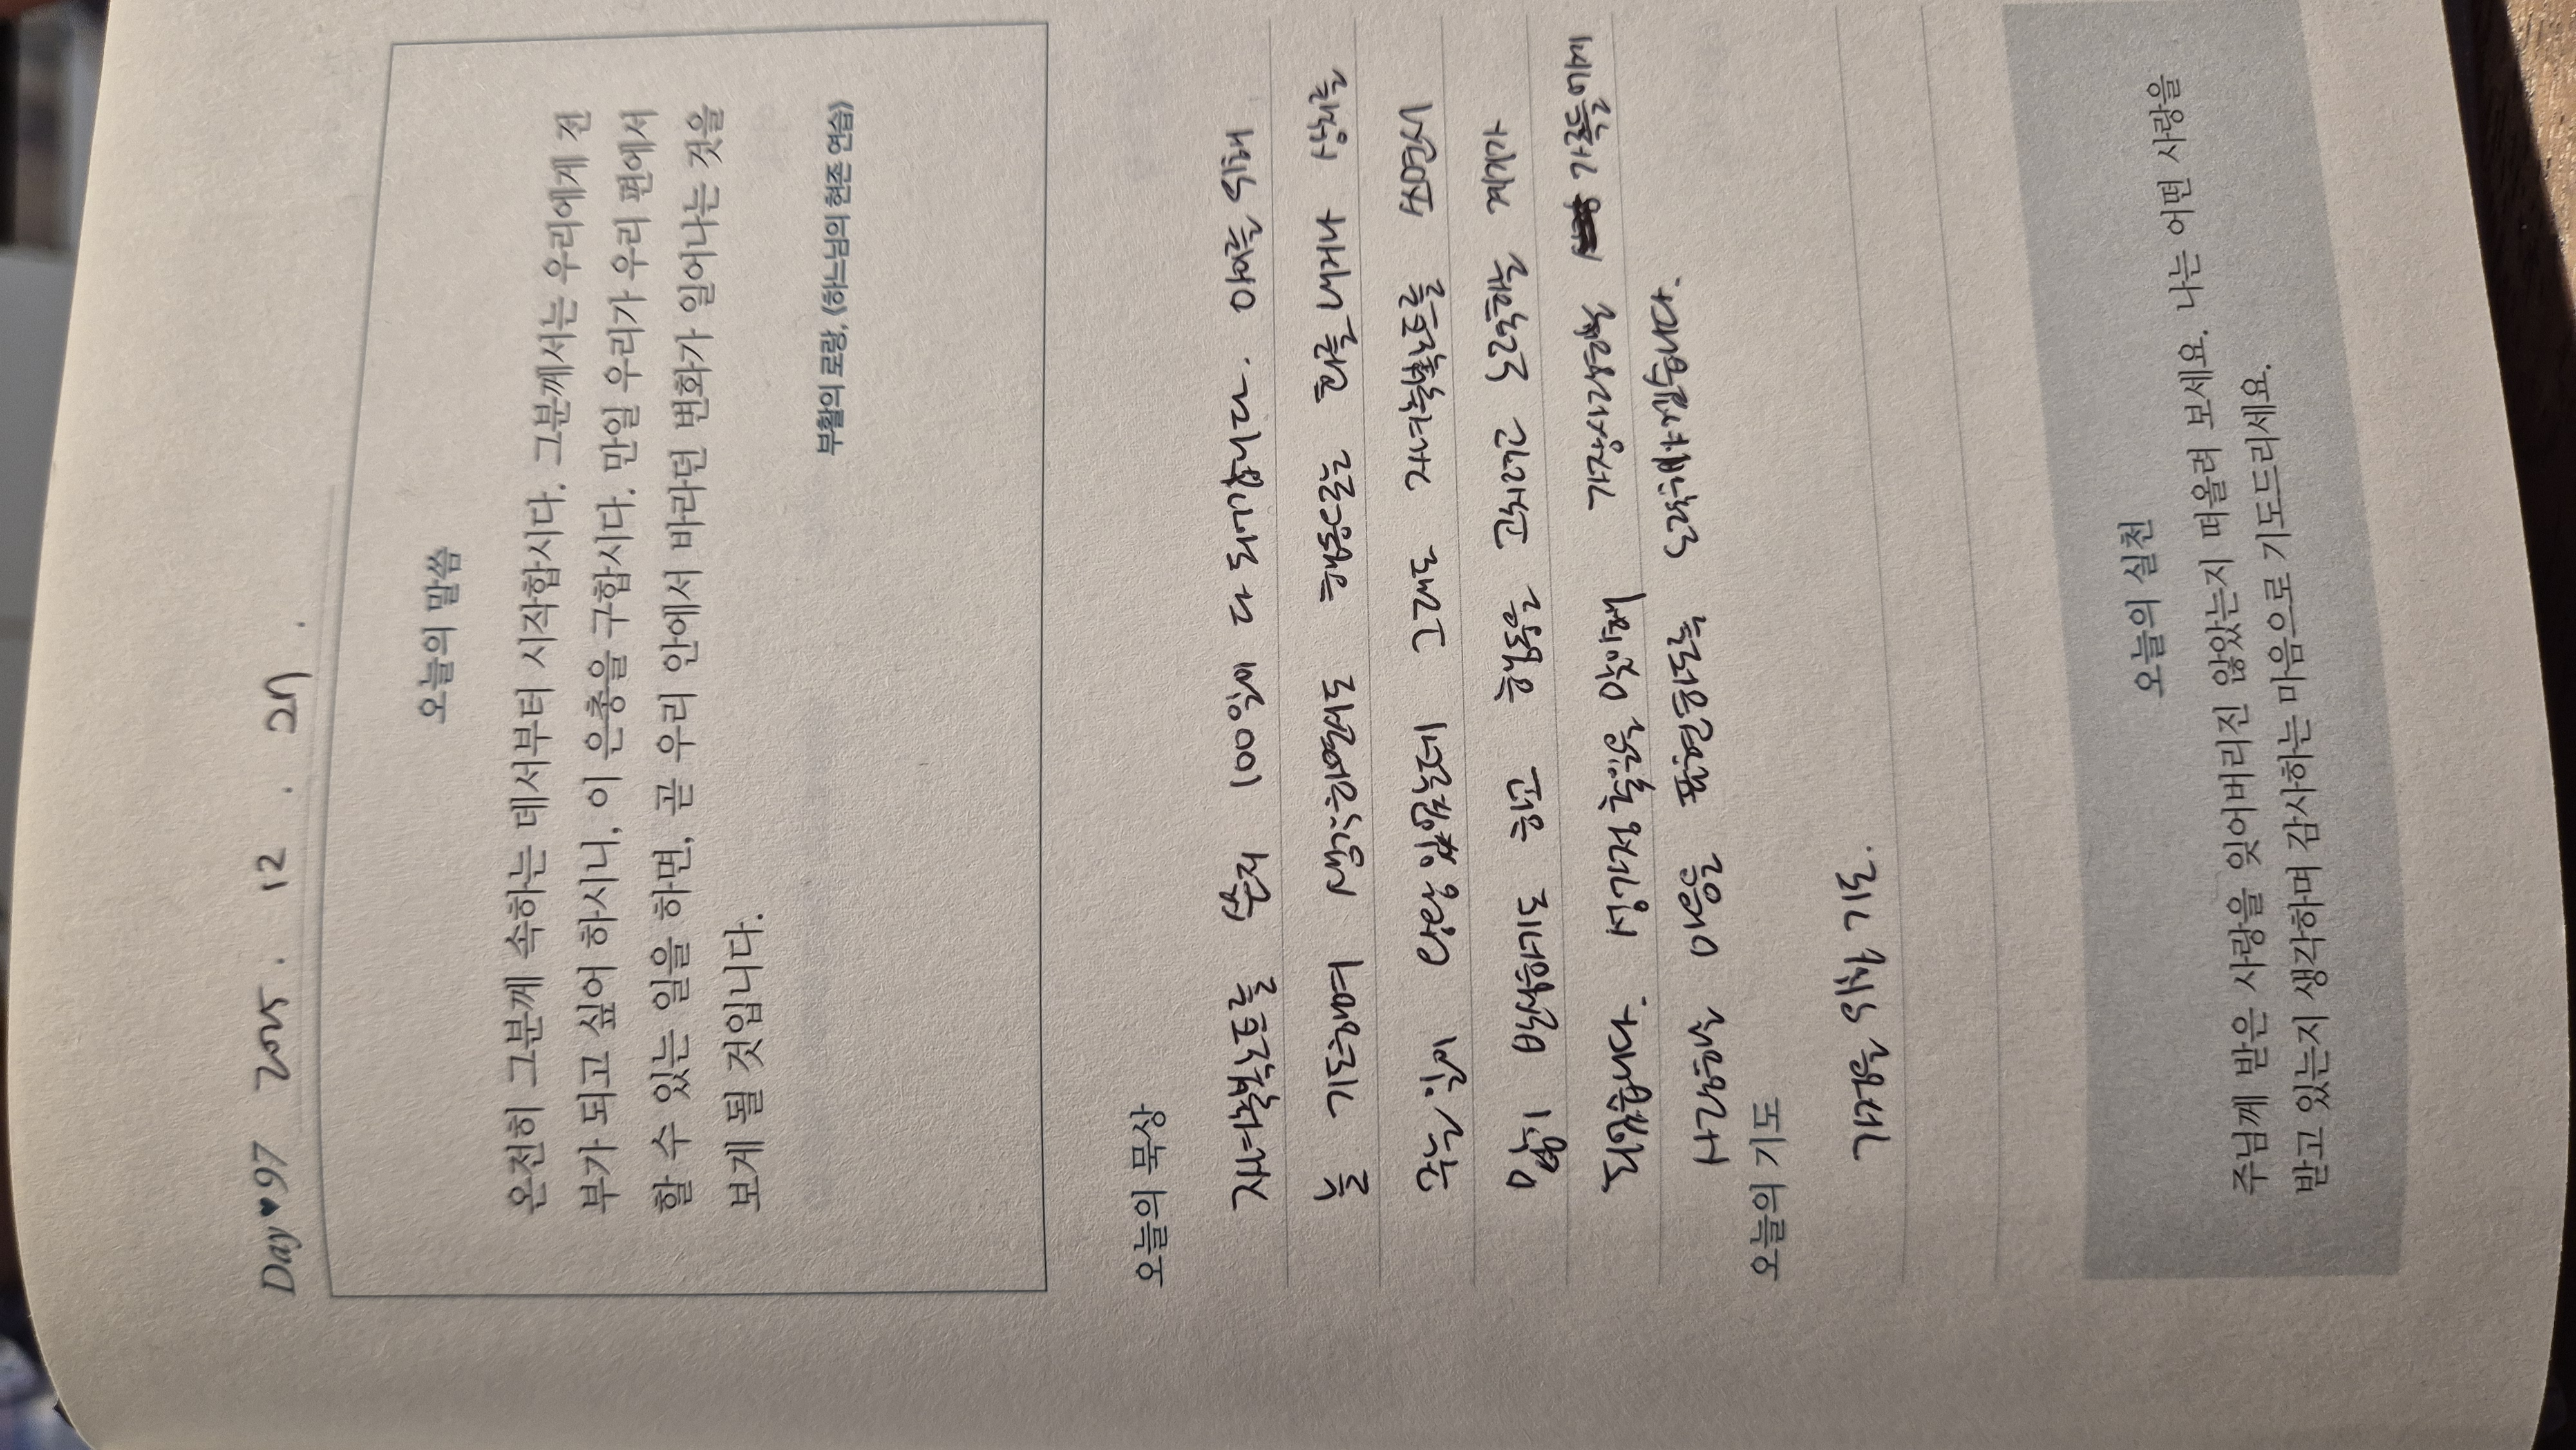 Day♥97 2025. 12. 27.
오늘의 말씀
온전히 그분께 속하는 데서부터 시작합시다. 그분께서는 우리에게 전
부가 되고 싶어 하시니, 이 은총을 구합시다. 만일 우리가 우리 편에서
할 수 있는 일을 하면, 곧 우리 안에서 바라던 변화가 일어나는 것을
보게 될 것입니다.
부활의 로랑, 《하느님의 현존 연습》
오늘의 묵상
자녀축복노트를 쓴지 100일에 다 되어갑니다. 아이를 위해
기도하며 생각한려도 행동으로는 화를 내거나 상처를
주는 일이 그래도 자녀축복노트를 쓰면서
입이 변화하기도 한 행동을 고치려고 노력하는 계기가
되었습니다. 가장사랑하는 가족들에게
사랑하는 마음을 표현하도록 노력해야겠습니다.
오늘의 기도
가정을 위한 기도.
오늘의 실천
주님께 받은 사랑을 잊어버리진 않았는지 떠올려 보세요. 나는 어떤 사랑을
받고 있는지 생각하며 감사하는 마음으로 기도드리세요.